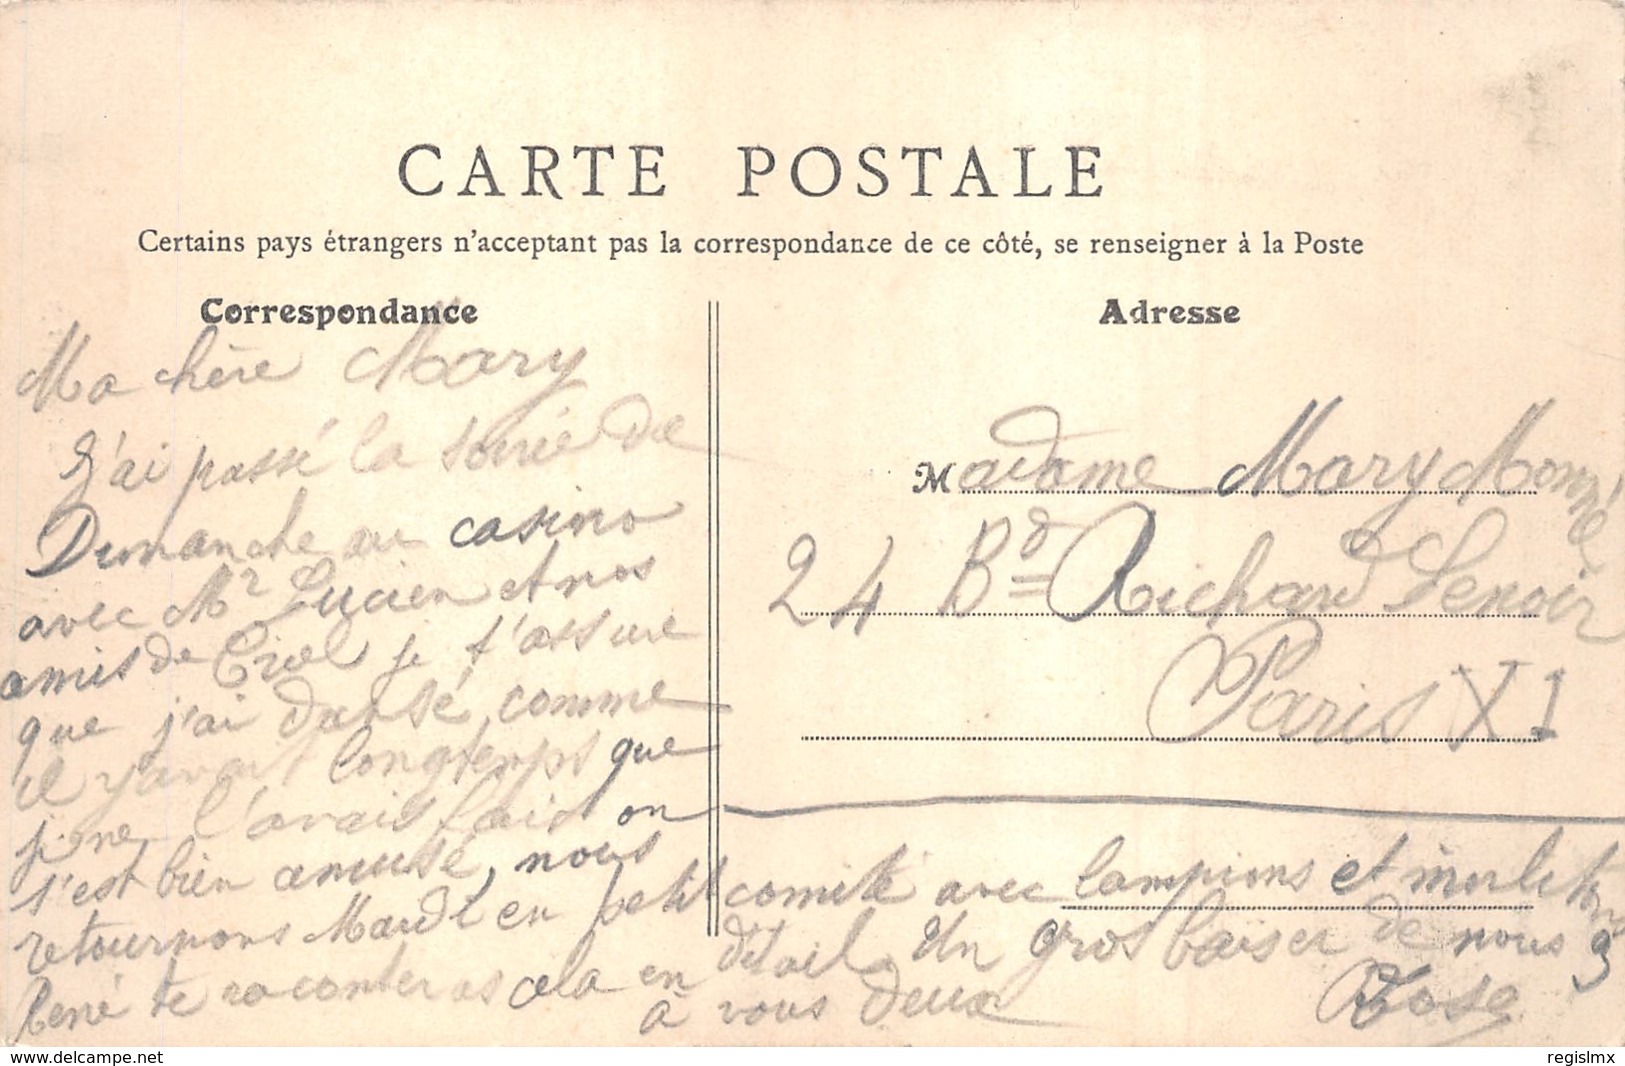 CARTE POSTALE
Certains pays étrangers n'acceptant pas la correspondance de ce côté, se renseigner à la Poste
Correspondance
Ma chère Mary
J'ai passé la soirée de
Dimanche au casino
avec Mr Lucien et nos
amis de Creil je t'assure
que j'ai dansé, comme
il y avait longtemps que
je ne l'avais fait on
s'est bien amusé, nous
retournons Mardi en petit comité avec lampions et mirlitons
René te racontera cela en détail. Un gros baiser de nous 3
à vous deux
Rose
Adresse
Madame Mary Monné
24 Bd Richard Lenoir
Paris XI
delcampe.net
regislmx